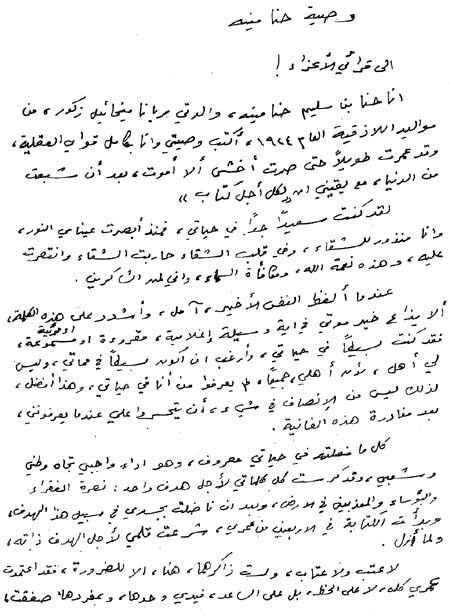 وصية حنا مينه
الى قرائي الأعزاء !
انا حنا بن سليم حنا مينه، والدتي مريانا ميخائيل زكور، من
مواليد اللاذقية العام ١٩٢٤، أكتب وصيتي وانا بكامل قواي العقلية،
وقد عمرت طويلاً حتى صرت أخشى ألا أموت، بعد أن شبعت
من الدنيا، مع يقيني انه «لكل أجل كتاب»
لقد كنت سعيداً جداً في حياتي، فمنذ أبصرت عيناي النور،
وانا منذور للشقاء، وفي قلب الشقاء حاربت الشقاء وانتصرت
عليه، وهذه نعمة الله، ومكافأة السماء، واني لمن الشاكرين.
عندما ألفظ النفس الأخير، آمل، وأشدد على هذه الكلمة،
ألا يذاع خبر موتي في أية وسيلة إعلامية، مقروءة او مسموعة، او مرئية
فقد كنت بسيطاً في حياتي، وأرغب ان أكون بسيطاً في مماتي، وليس
لي أهل، لأن أهلي، جميعاً، لم يعرفوا من أنا في حياتي، وهذا أفضل،
لذلك ليس من الإنصاف في شيء، أن يتحسروا علي عندما يعرفونني،
بعد مغادرة هذه الفانية.
كل ما فعلته في حياتي معروف، وهو اداء واجبي تجاه وطني
وشعبي، وقد كرست كل كلماتي لأجل هدف واحد: نصرة الفقراء
والبؤساء والمعذبين في الارض، وبعد ان ناضلت بجسدي في سبيل هذا الهدف،
وبدأت الكتابة في الاربعين من عمري، شرعت قلمي لأجل الهدف ذاته،
ولما أزل.
لا عتب ولا عتاب، ولست ذاكرهما، هنا، الا للضرورة، فقد اعتمدت
عمري كله، لا على الحظ، بل على الساعد، فيدي وحدها، وبمفردها، صفقت،